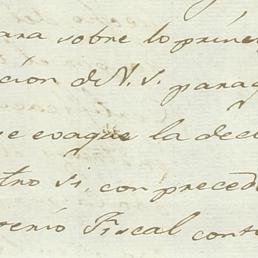 ara sobre lo prine
cion de N. S. para q
e evaque la decl
tro si, con precede
erio Fiscal cont